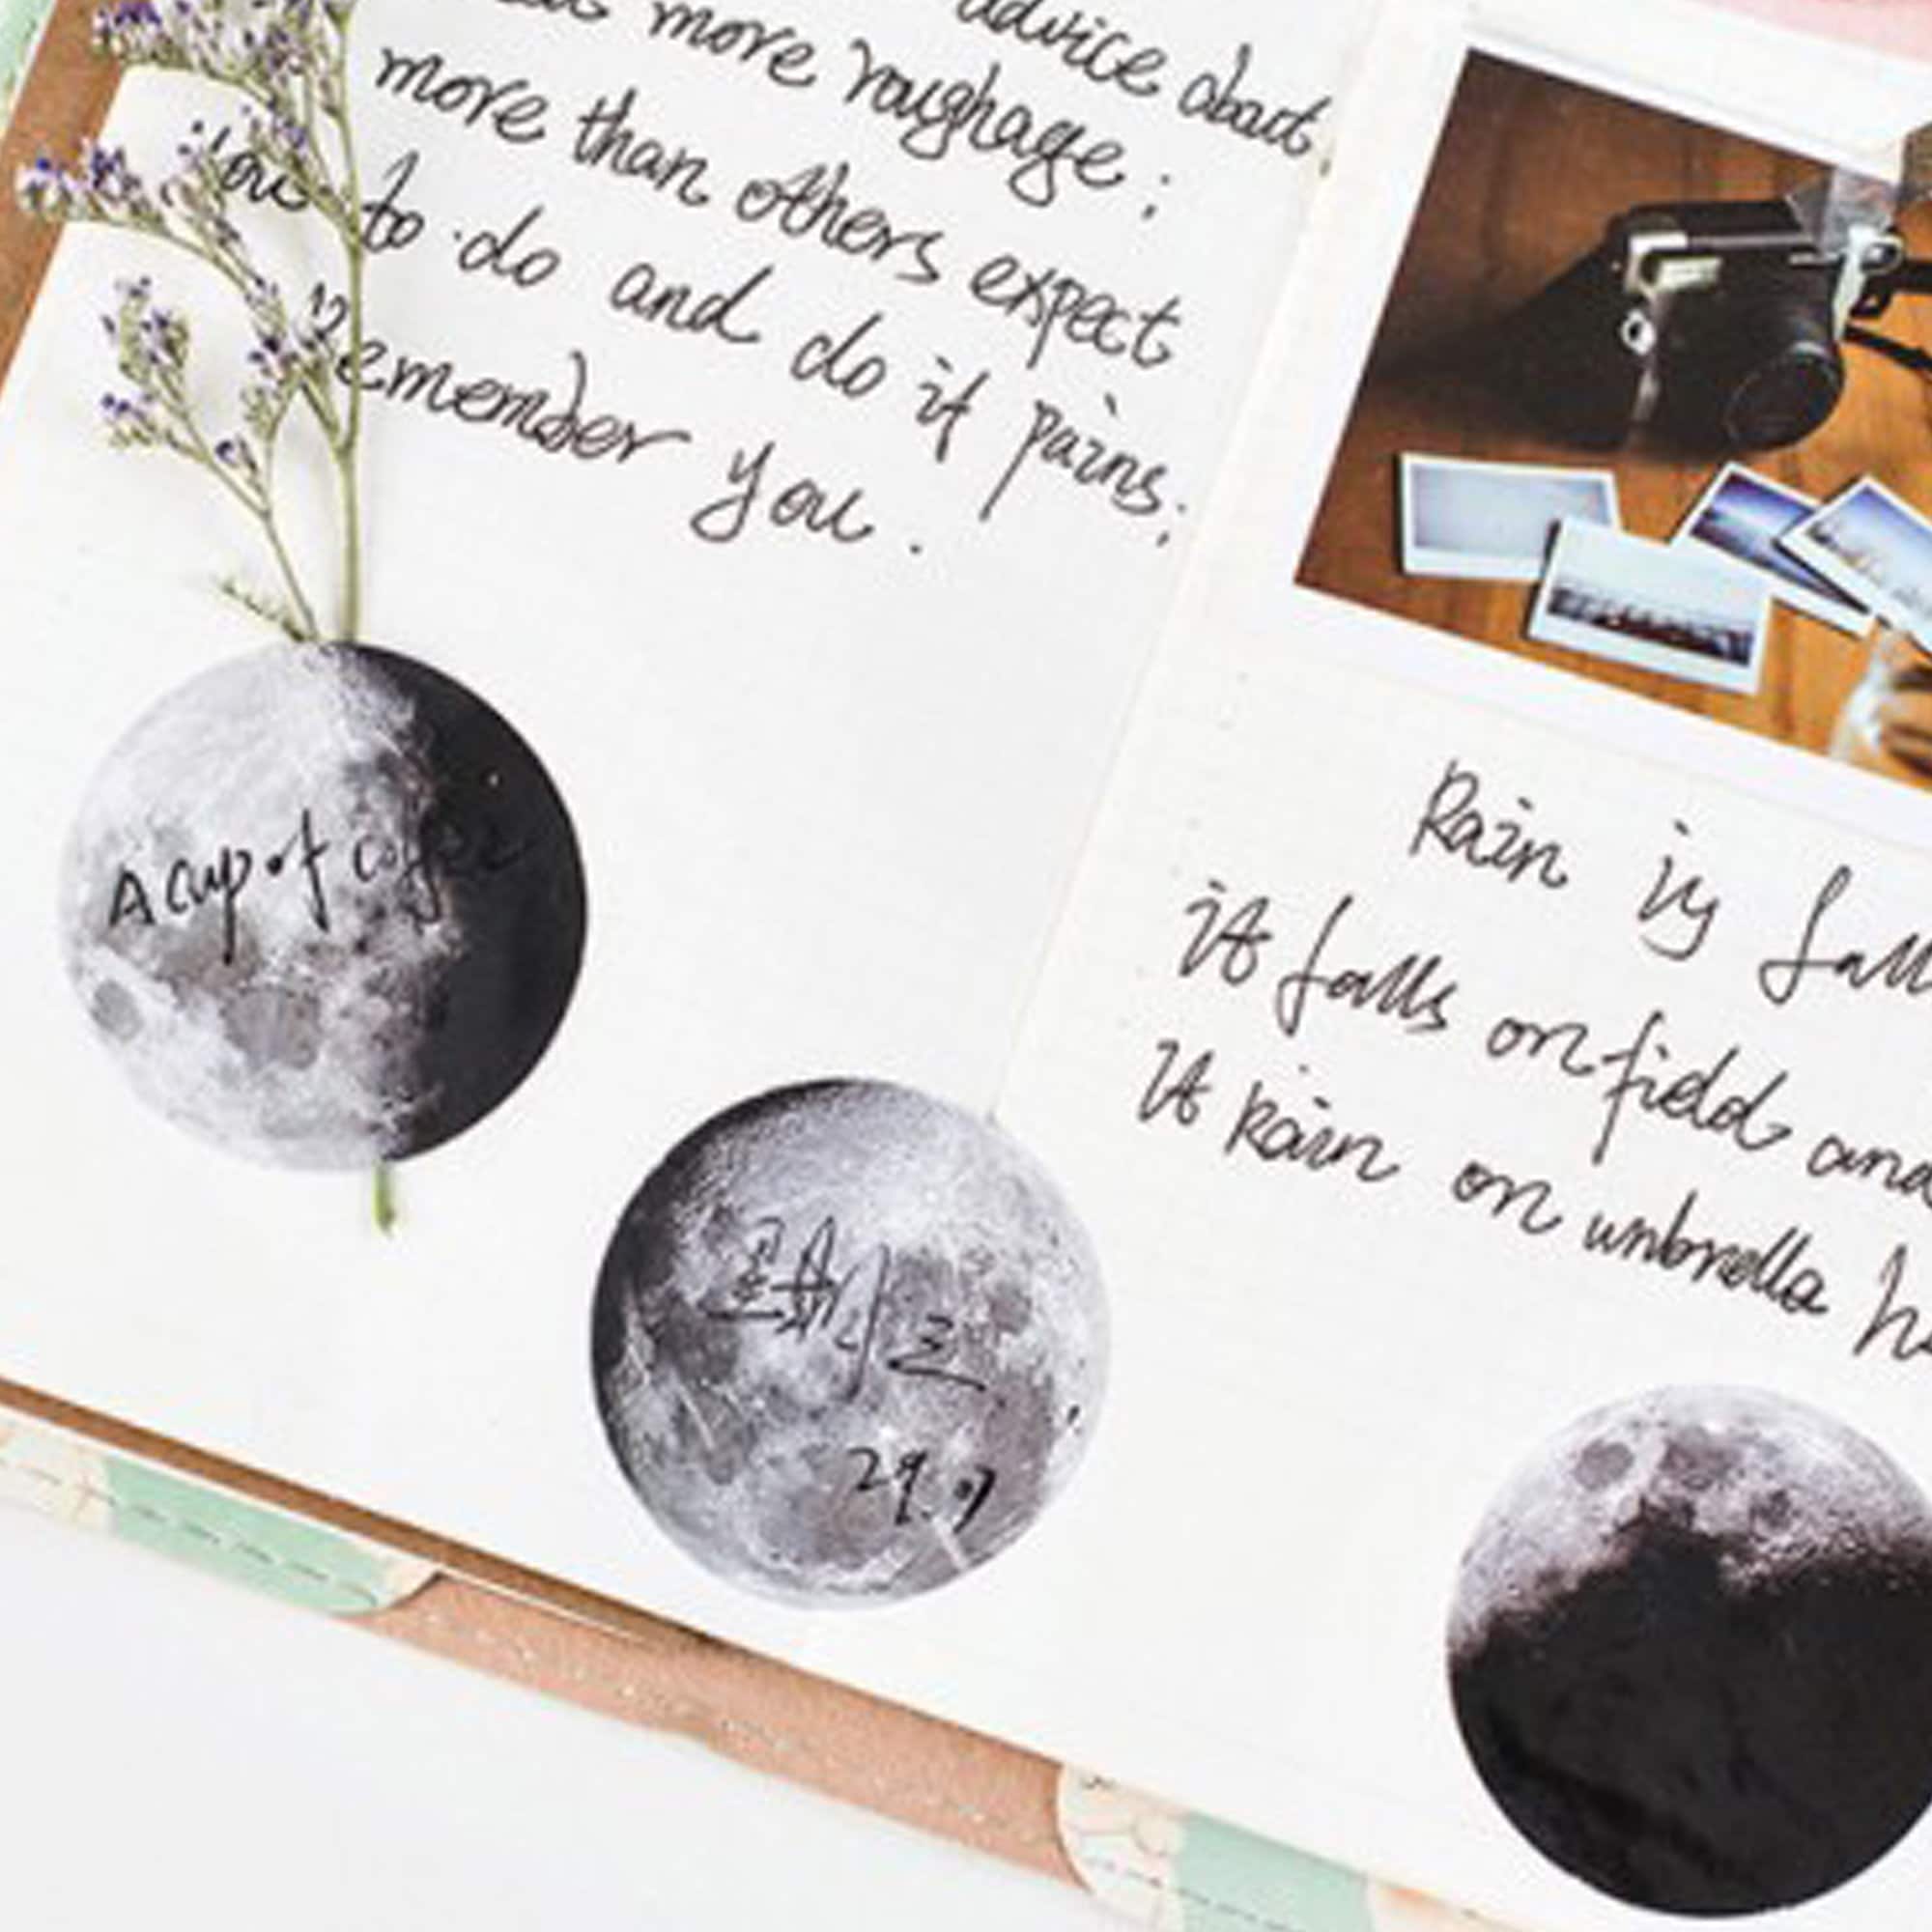 advice about
more roughage;
more than others expect
You to do and do it pains;
remember you.
A cup of coffee
星期三
29.7
Rain is
it falls on field and
It Rain on unbrella